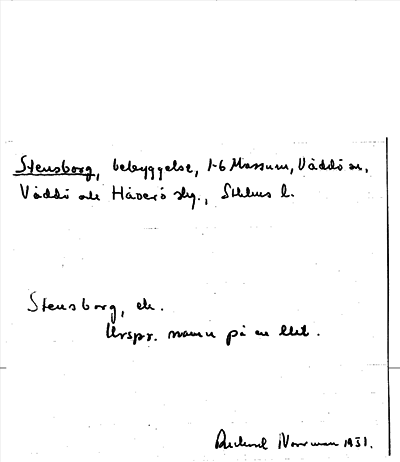 Stensborg, bebyggelse, 1-6 Massum, Väddö sn,
Väddö och Häverö slg., Sthlms l.
Stensborg, ek.
Urspr. namn på en lht.
Norrman 1931.